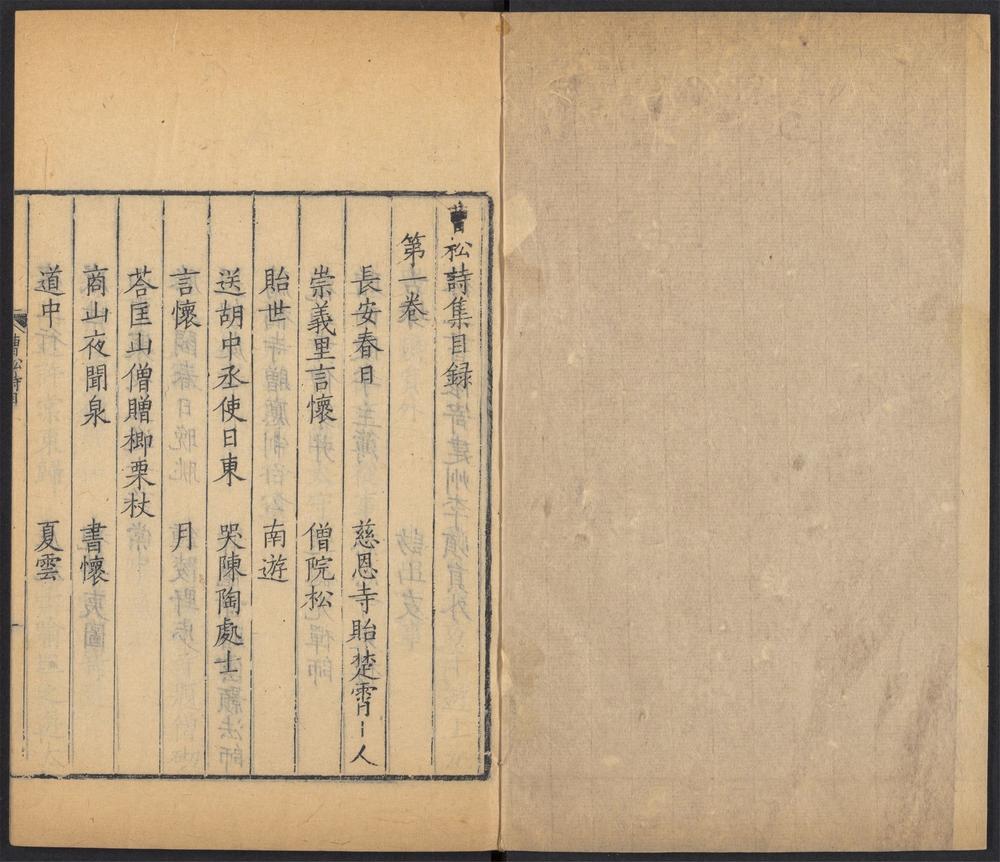 曹松詩集目録
第一卷
長安春日 慈恩寺貽楚霄上人
崇義里言懷 僧院松
貽世 南遊
送胡中丞使日東 哭陳陶處士
言懷 月
荅匡山僧贈榔栗杖
商山夜聞泉 書懷
道中 夏雲
曹松詩目
一